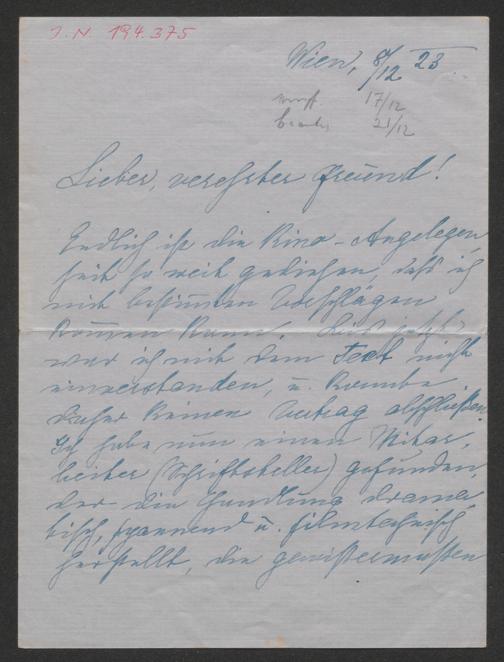 J.N. 194.375
Wien, 8/12 23
17/12
21/12
Lieber, verehrter Freund!
Endlich ist die Kino-Angelegen
heit so weit gediehen, daß ich
mit bestimmten Vorschlägen
kommen kann. Bis jetzt
war ich mit dem Text nicht
einverstanden, u. konnte
daher keinen Vertrag abschließen.
Ich habe nun einen Mitar-
beiter (Schriftsteller) gefunden,
der die Handlung drama-
tisch, spannend u. filmtechnisch
herstellt, die gewissermaßen